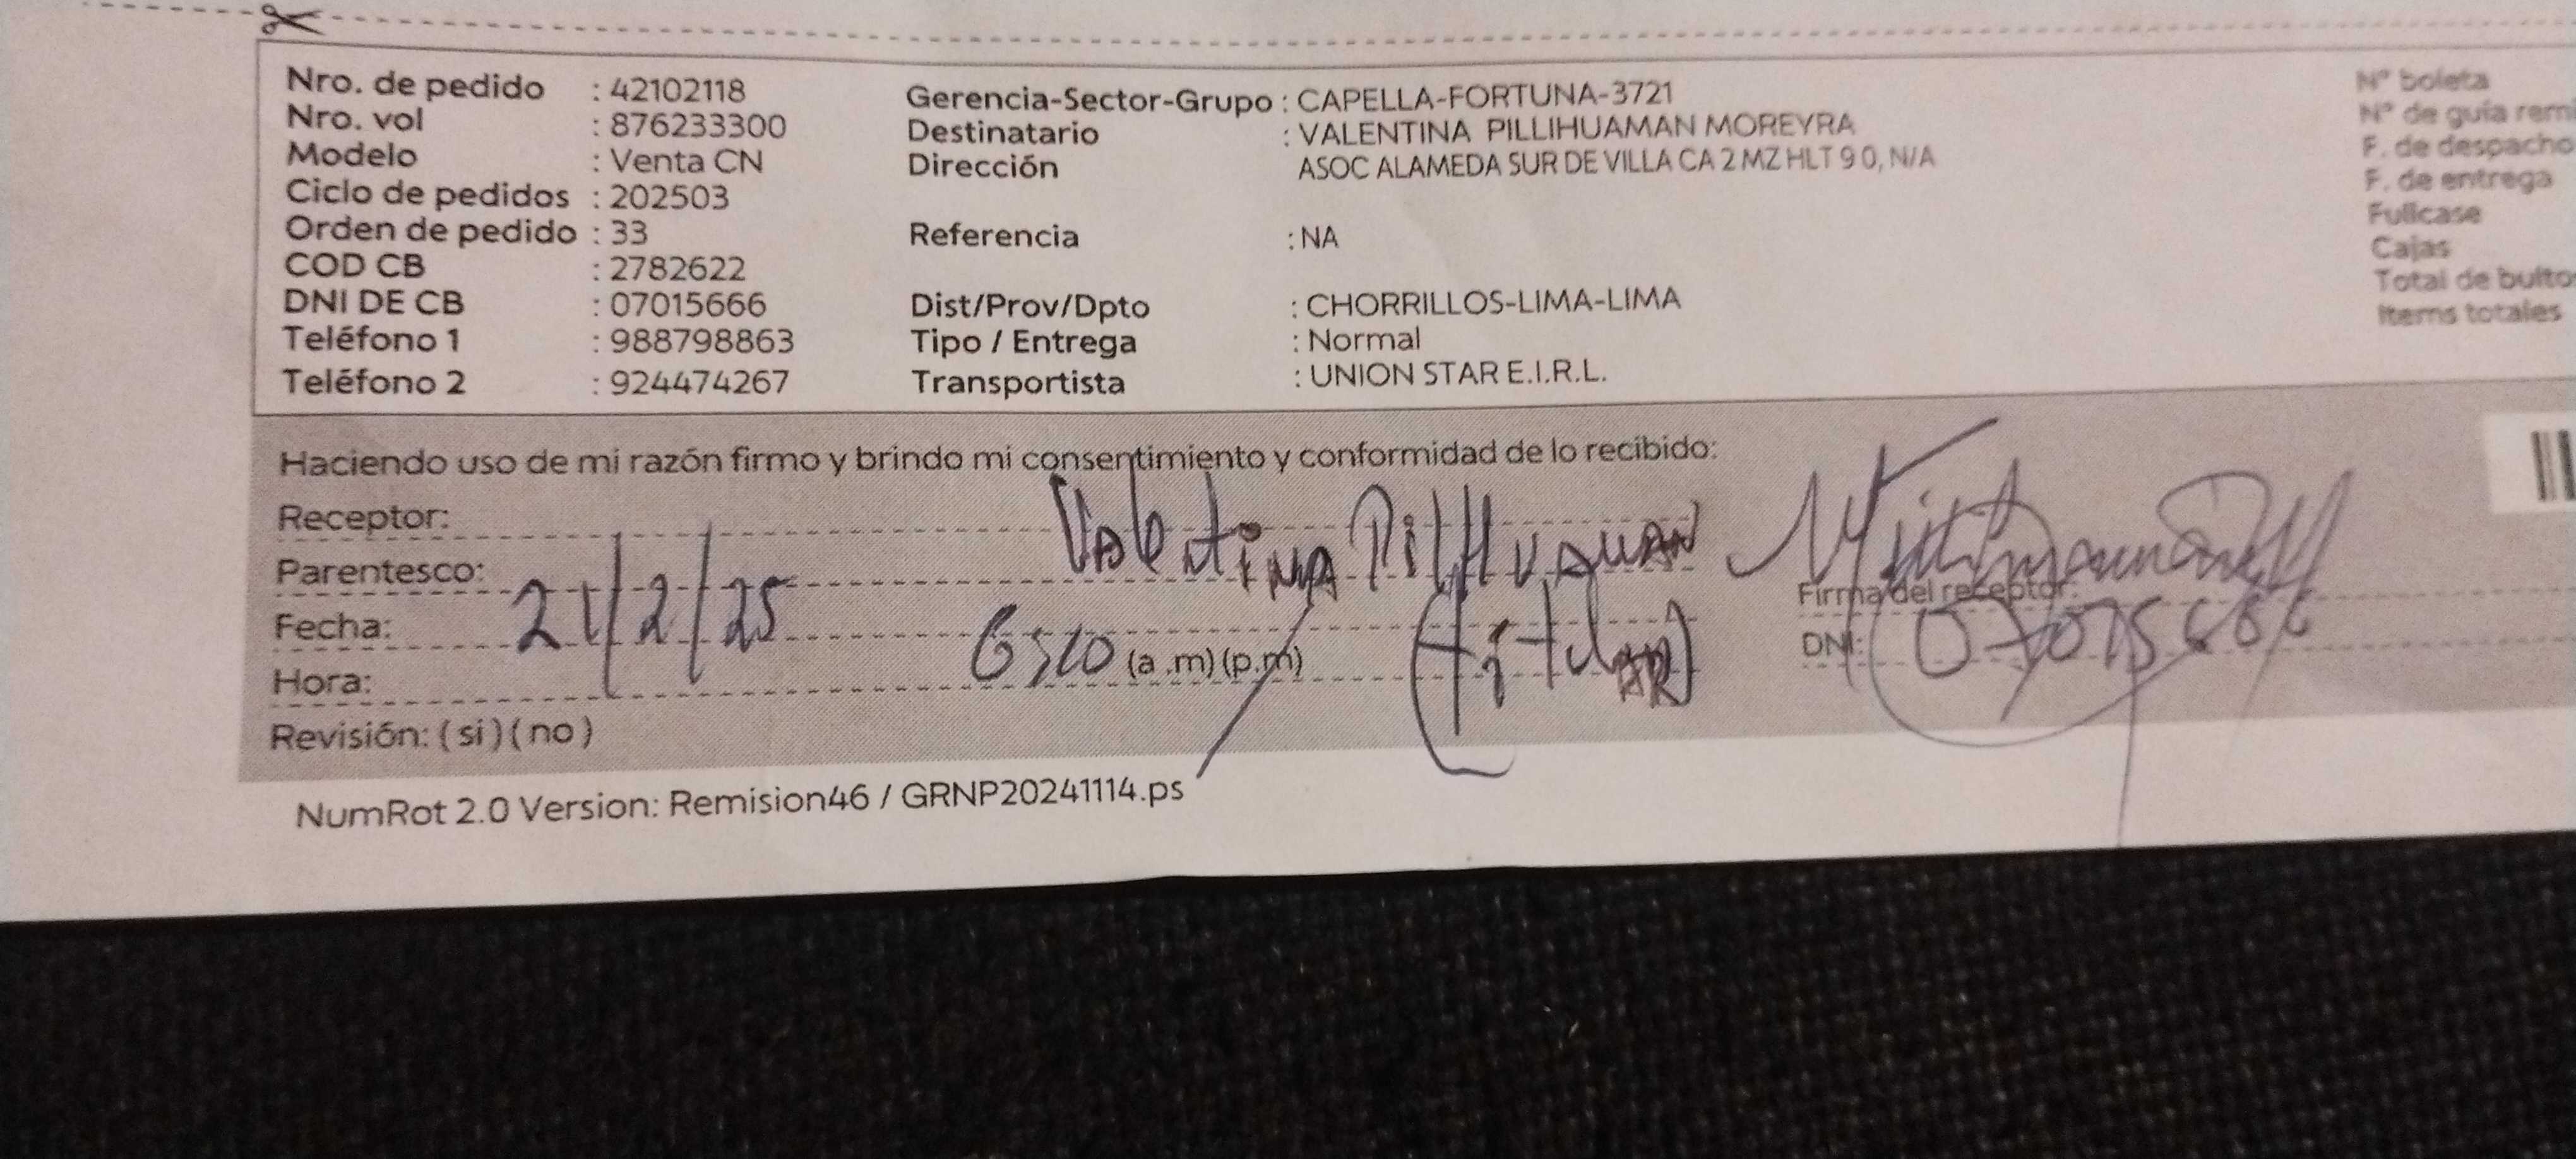 Nro. de pedido : 42102118
Nro. vol : 876233300
Modelo : Venta CN
Ciclo de pedidos : 202503
Orden de pedido : 33
COD CB : 2782622
DNI DE CB : 07015666
Teléfono 1 : 988798863
Teléfono 2 : 924474267
Gerencia-Sector-Grupo : CAPELLA-FORTUNA-3721
Destinatario : VALENTINA PILLIHUAMAN MOREYRA
Dirección ASOC ALAMEDA SUR DE VILLA CA 2 MZ HLT 9 0, N/A
Referencia : NA
Dist/Prov/Dpto : CHORRILLOS-LIMA-LIMA
Tipo / Entrega : Normal
Transportista : UNION STAR E.I.R.L.
N° boleta
N° de guía remi
F. de despacho
F. de entrega
Fullcase
Cajas
Total de bulto
Items totales
Haciendo uso de mi razón firmo y brindo mi consentimiento y conformidad de lo recibido:
Receptor: Valentina
Parentesco:
Fecha: 21/2/25
Hora: (a .m) (p.m) (titular)
Revisión: ( si ) ( no )
Firma del receptor:
DNI: 07015666
NumRot 2.0 Version: Remision46 / GRNP20241114.ps